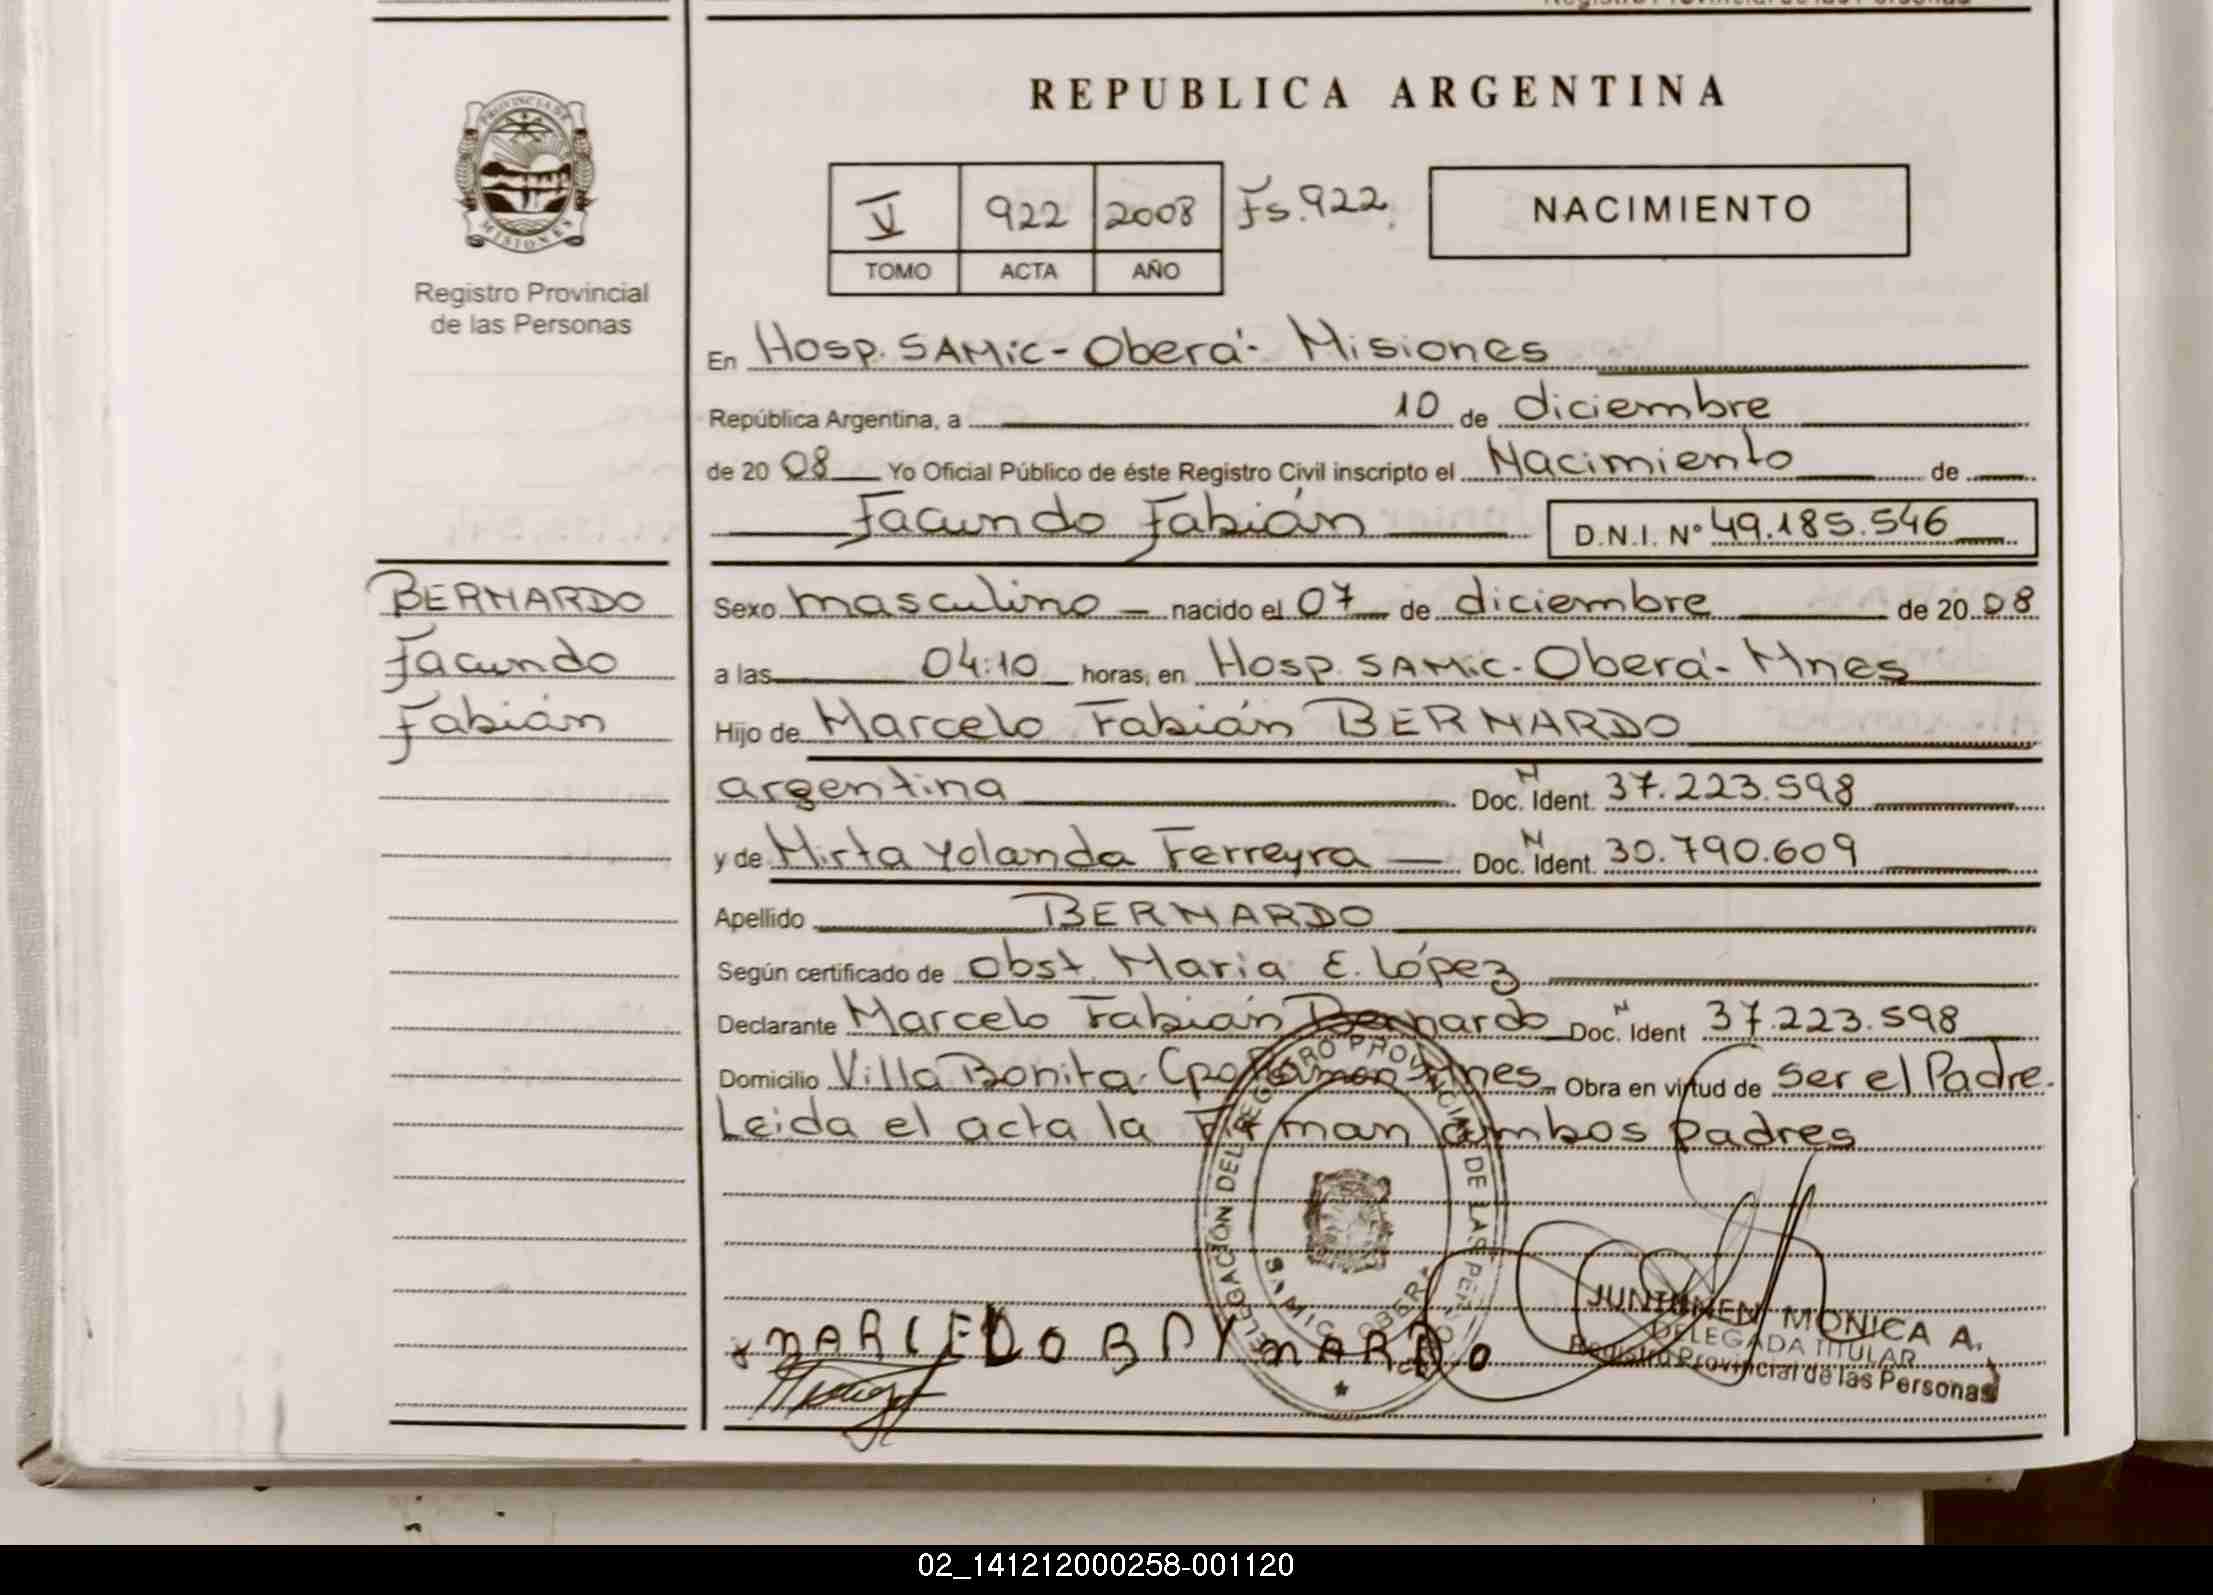 REPUBLICA ARGENTINA
PROVINCIA DE
MISIONES
Registro Provincial
de las Personas
V 922 2008 Fs. 922.
TOMO ACTA AÑO
NACIMIENTO
En Hosp. SAMIC - Oberá - Misiones
República Argentina, a 10 de diciembre
de 20 08 Yo Oficial Público de éste Registro Civil inscripto el Nacimiento de
Facundo Fabián D.N.I. Nº 49.185.546
BERNARDO
Facundo
Fabián
Sexo masculino nacido el 07 de diciembre de 20 08
a las 04:10 horas, en Hosp. SAMIC - Oberá - Mnes
Hijo de Marcelo Fabián BERNARDO
argentina Doc. N Ident. 37.223.598
y de Mirta Yolanda Ferreyra Doc. N Ident. 30.790.609
Apellido BERNARDO
Según certificado de Obst. Maria E. López
Declarante Marcelo Fabián Bernardo Doc. N Ident 37.223.598
Domicilio Villa Bonita - Cpo Ramon - Mnes Obra en virtud de ser el Padre.
Leida el acta la Firman ambos padres
DELEGACIÓN DEL REGISTRO PROVINCIAL DE LAS
SAMIC OBERA
MARCELO
JUNTUNEN MONICA A.
DELEGADA TITULAR
Registro Provincial de las Personas
02_141212000258-001120